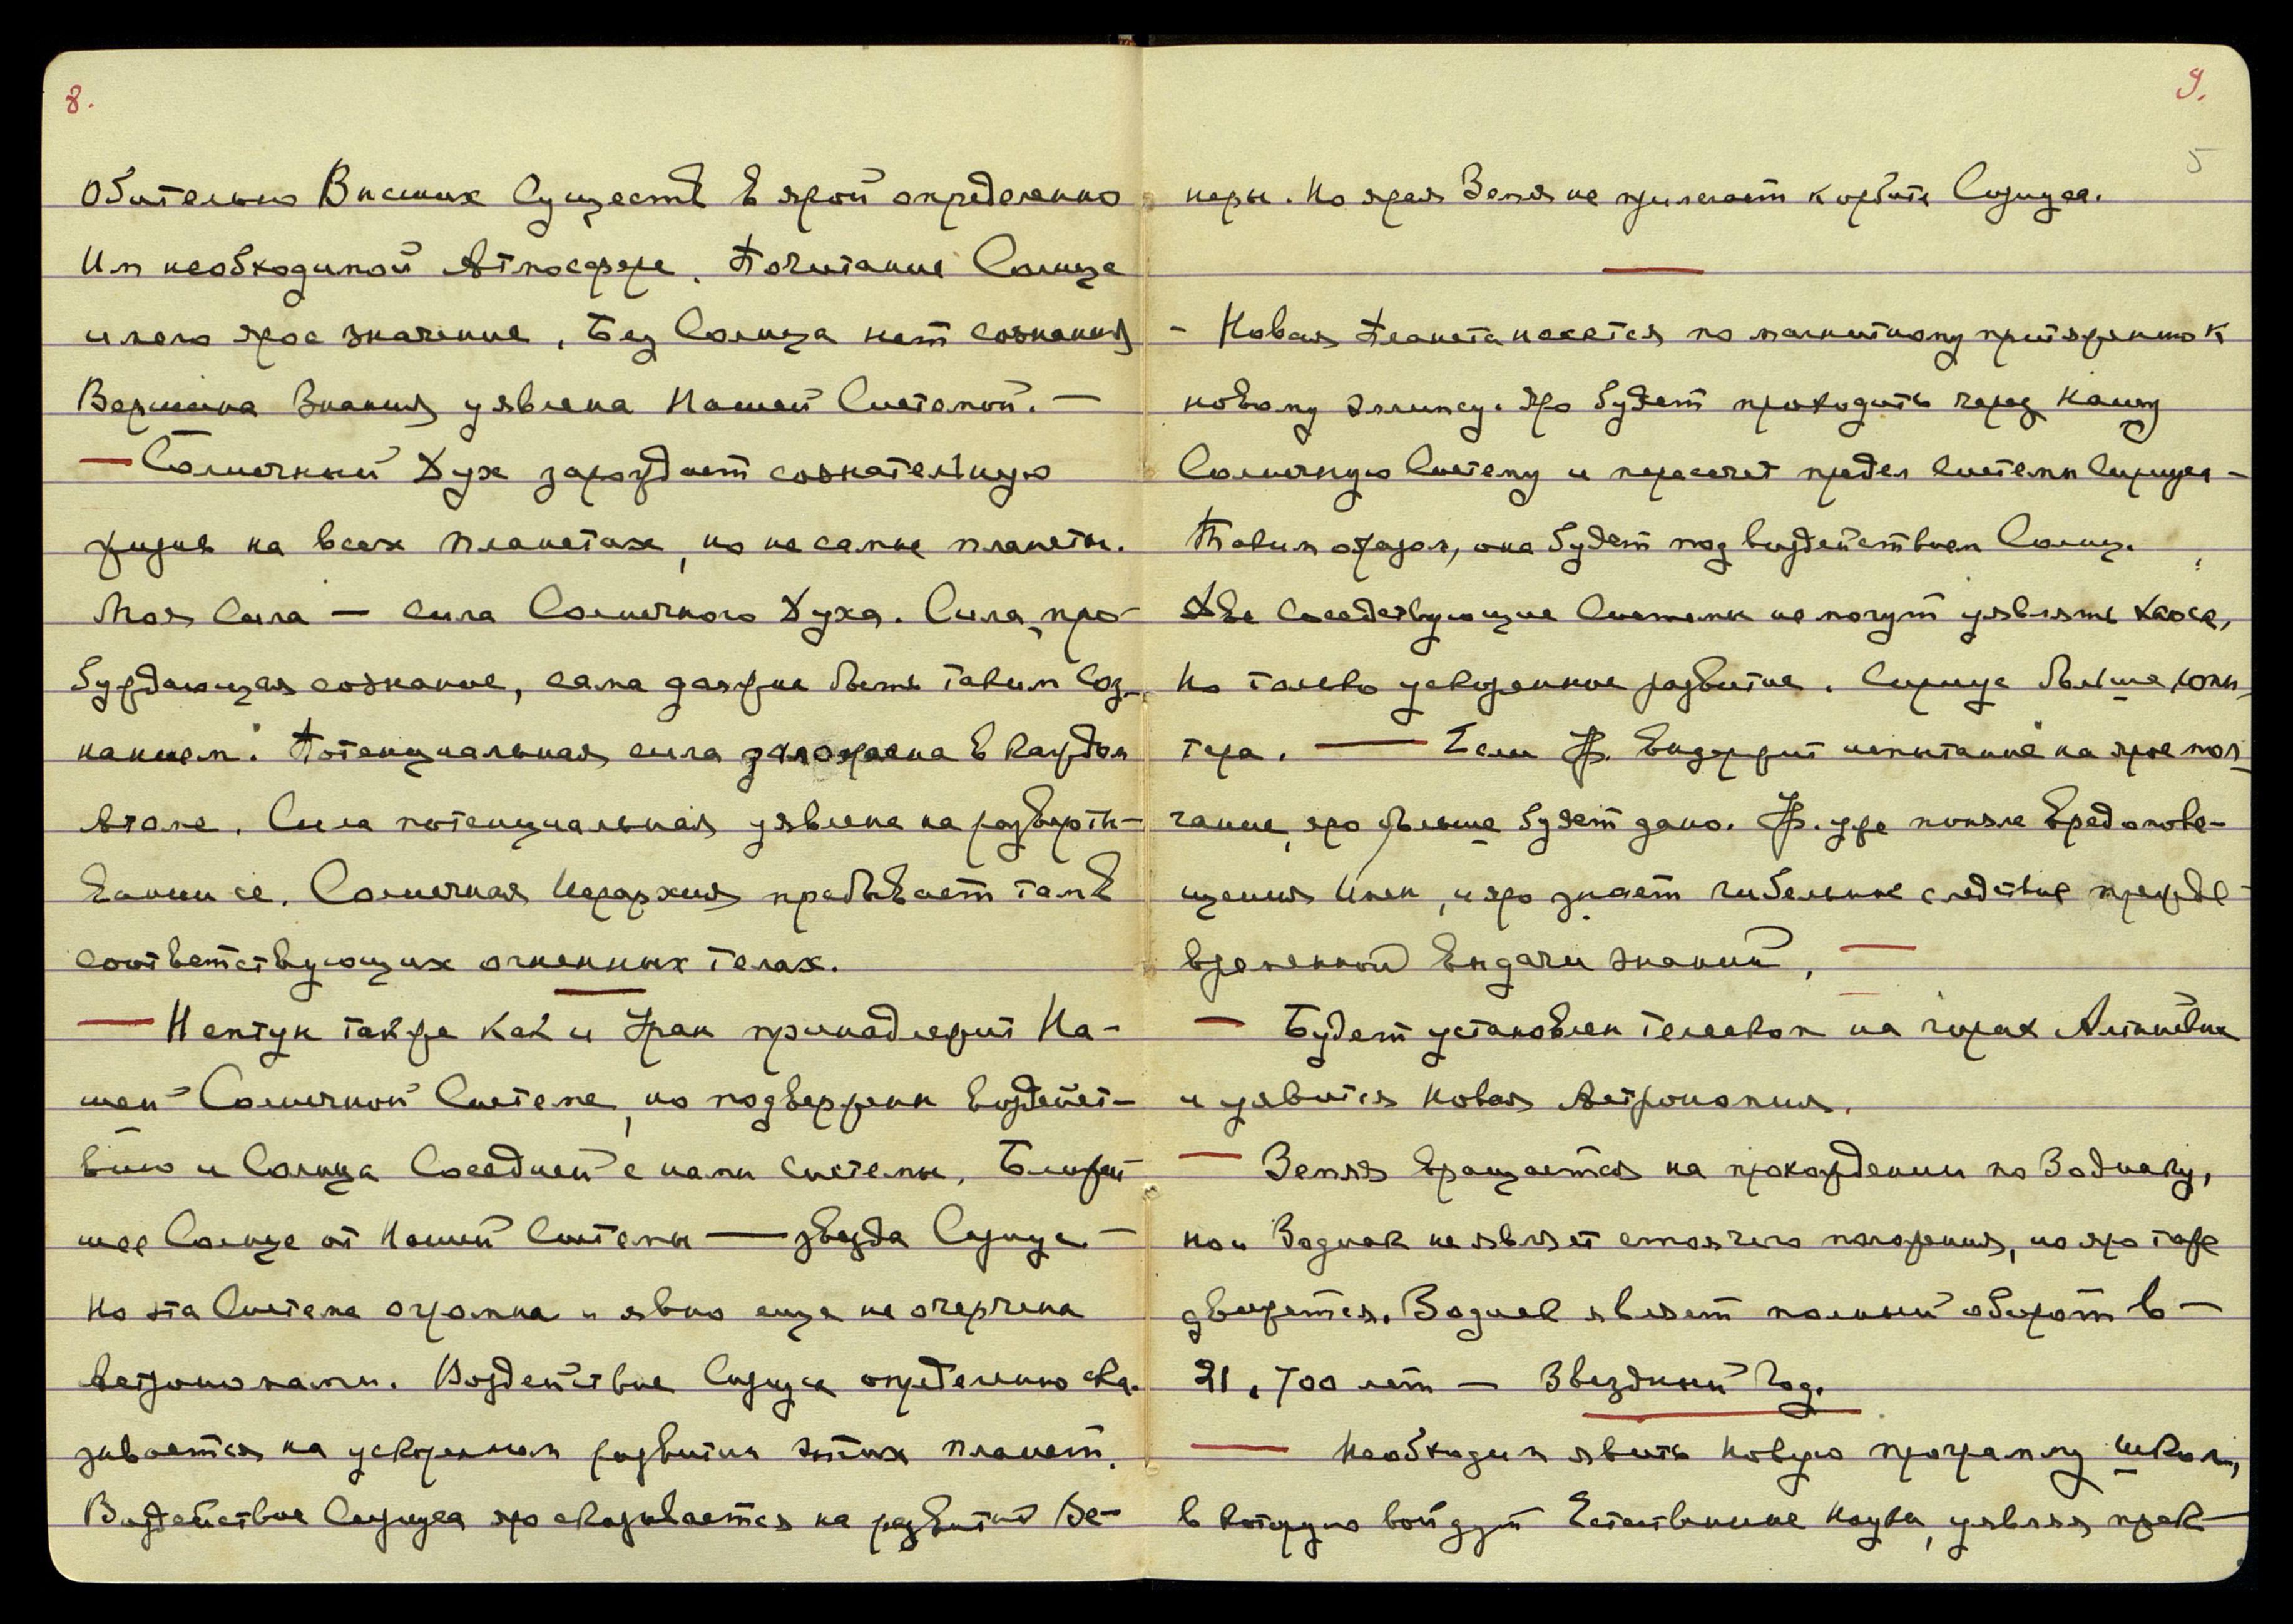 8.
Обителью Высших Существ в ярой определенно
Им необходимой Атмосфере. Почитание Солнца
имело ярое значение, Без Солнца нет сознания
Вершина Знания уявлена Нашей Системой. —
— Солнечный Дух зарождает сознательную
жизнь на всех планетах, но не самые планеты.
Моя Сила — сила Солнечного Духа. Сила, про-
буждающая сознание, сама должна быть таким Соз-
нанием. Потенциальная сила заложена в каждом
Атоме. Сила потенциальная уявлена на разверты-
вании ее. Солнечная Иерархия пребывает там в
соответствующих огненных телах.
— Нептун также как и Уран принадлежит На-
шей Солнечной Системе, но подвержен воздейст-
вию и Солнца Соседней с нами системы. Ближай-
шее Солнце от Нашей Системы — звезда Сириус —
Но эта Система огромна и явно еще не очерчена
Астрономами. Воздействие Сириуса определенно ска-
зывается на ускоренном развитии этих планет.
Воздействие Сириуса яро сказывается на развитии Ве-
9.
5
неры. Но ярая Земля не прилегает к орбите Сириуса.
- Новая Планета несется по магнитному притяжению к
новому эллипсу. Яро будет проходить через Нашу
Солнечную Систему и пересечет предел системы Сириуса —
Таким образом, она будет под воздействием Солнц.
Две Соседствующие Системы не могут уявлять хаоса,
Но только ускоренное развитие. Сириус больше Юпи-
тера. — Если Ж. выдержит испытание на ярое мол-
чание, яро больше будет дано. Ж. уже поняла вред опове-
щения Имен, и яро знает гибельные следствие прежде-
временной выдачи знаний. —
— Будет установлен телескоп на горах Алтайских
и уявится Новая Астрономия.
— Земля вращается на прохождении по Зодиаку,
но и Зодиак не являет стоячего положения, но яро тоже
движется. Зодиак являет полный оборот в —
21.700 лет — Звездный Год.
— Необходим явить Новую программу школ,
в которую войдут Естественные Науки, уявляя прак-